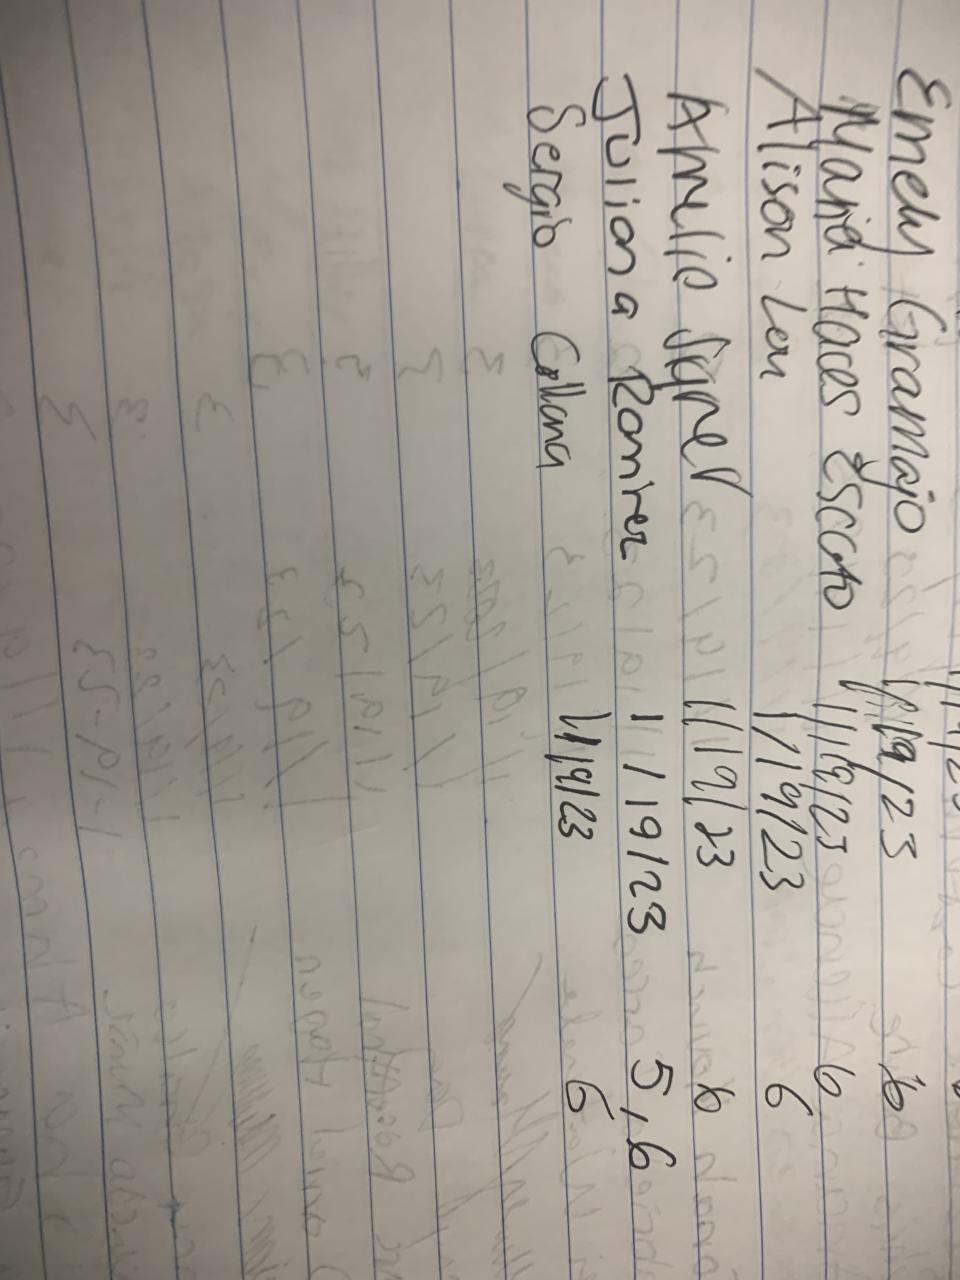 Emely Gramajo 11/19/23 6
Maria Haces Escoto 11/19/23 6
Alison Leu 11/19/23 6
Amelie 11/19/23 6
Juliana Ramirez 11/19/23 5,6
Sergio Collana 11/19/23 6